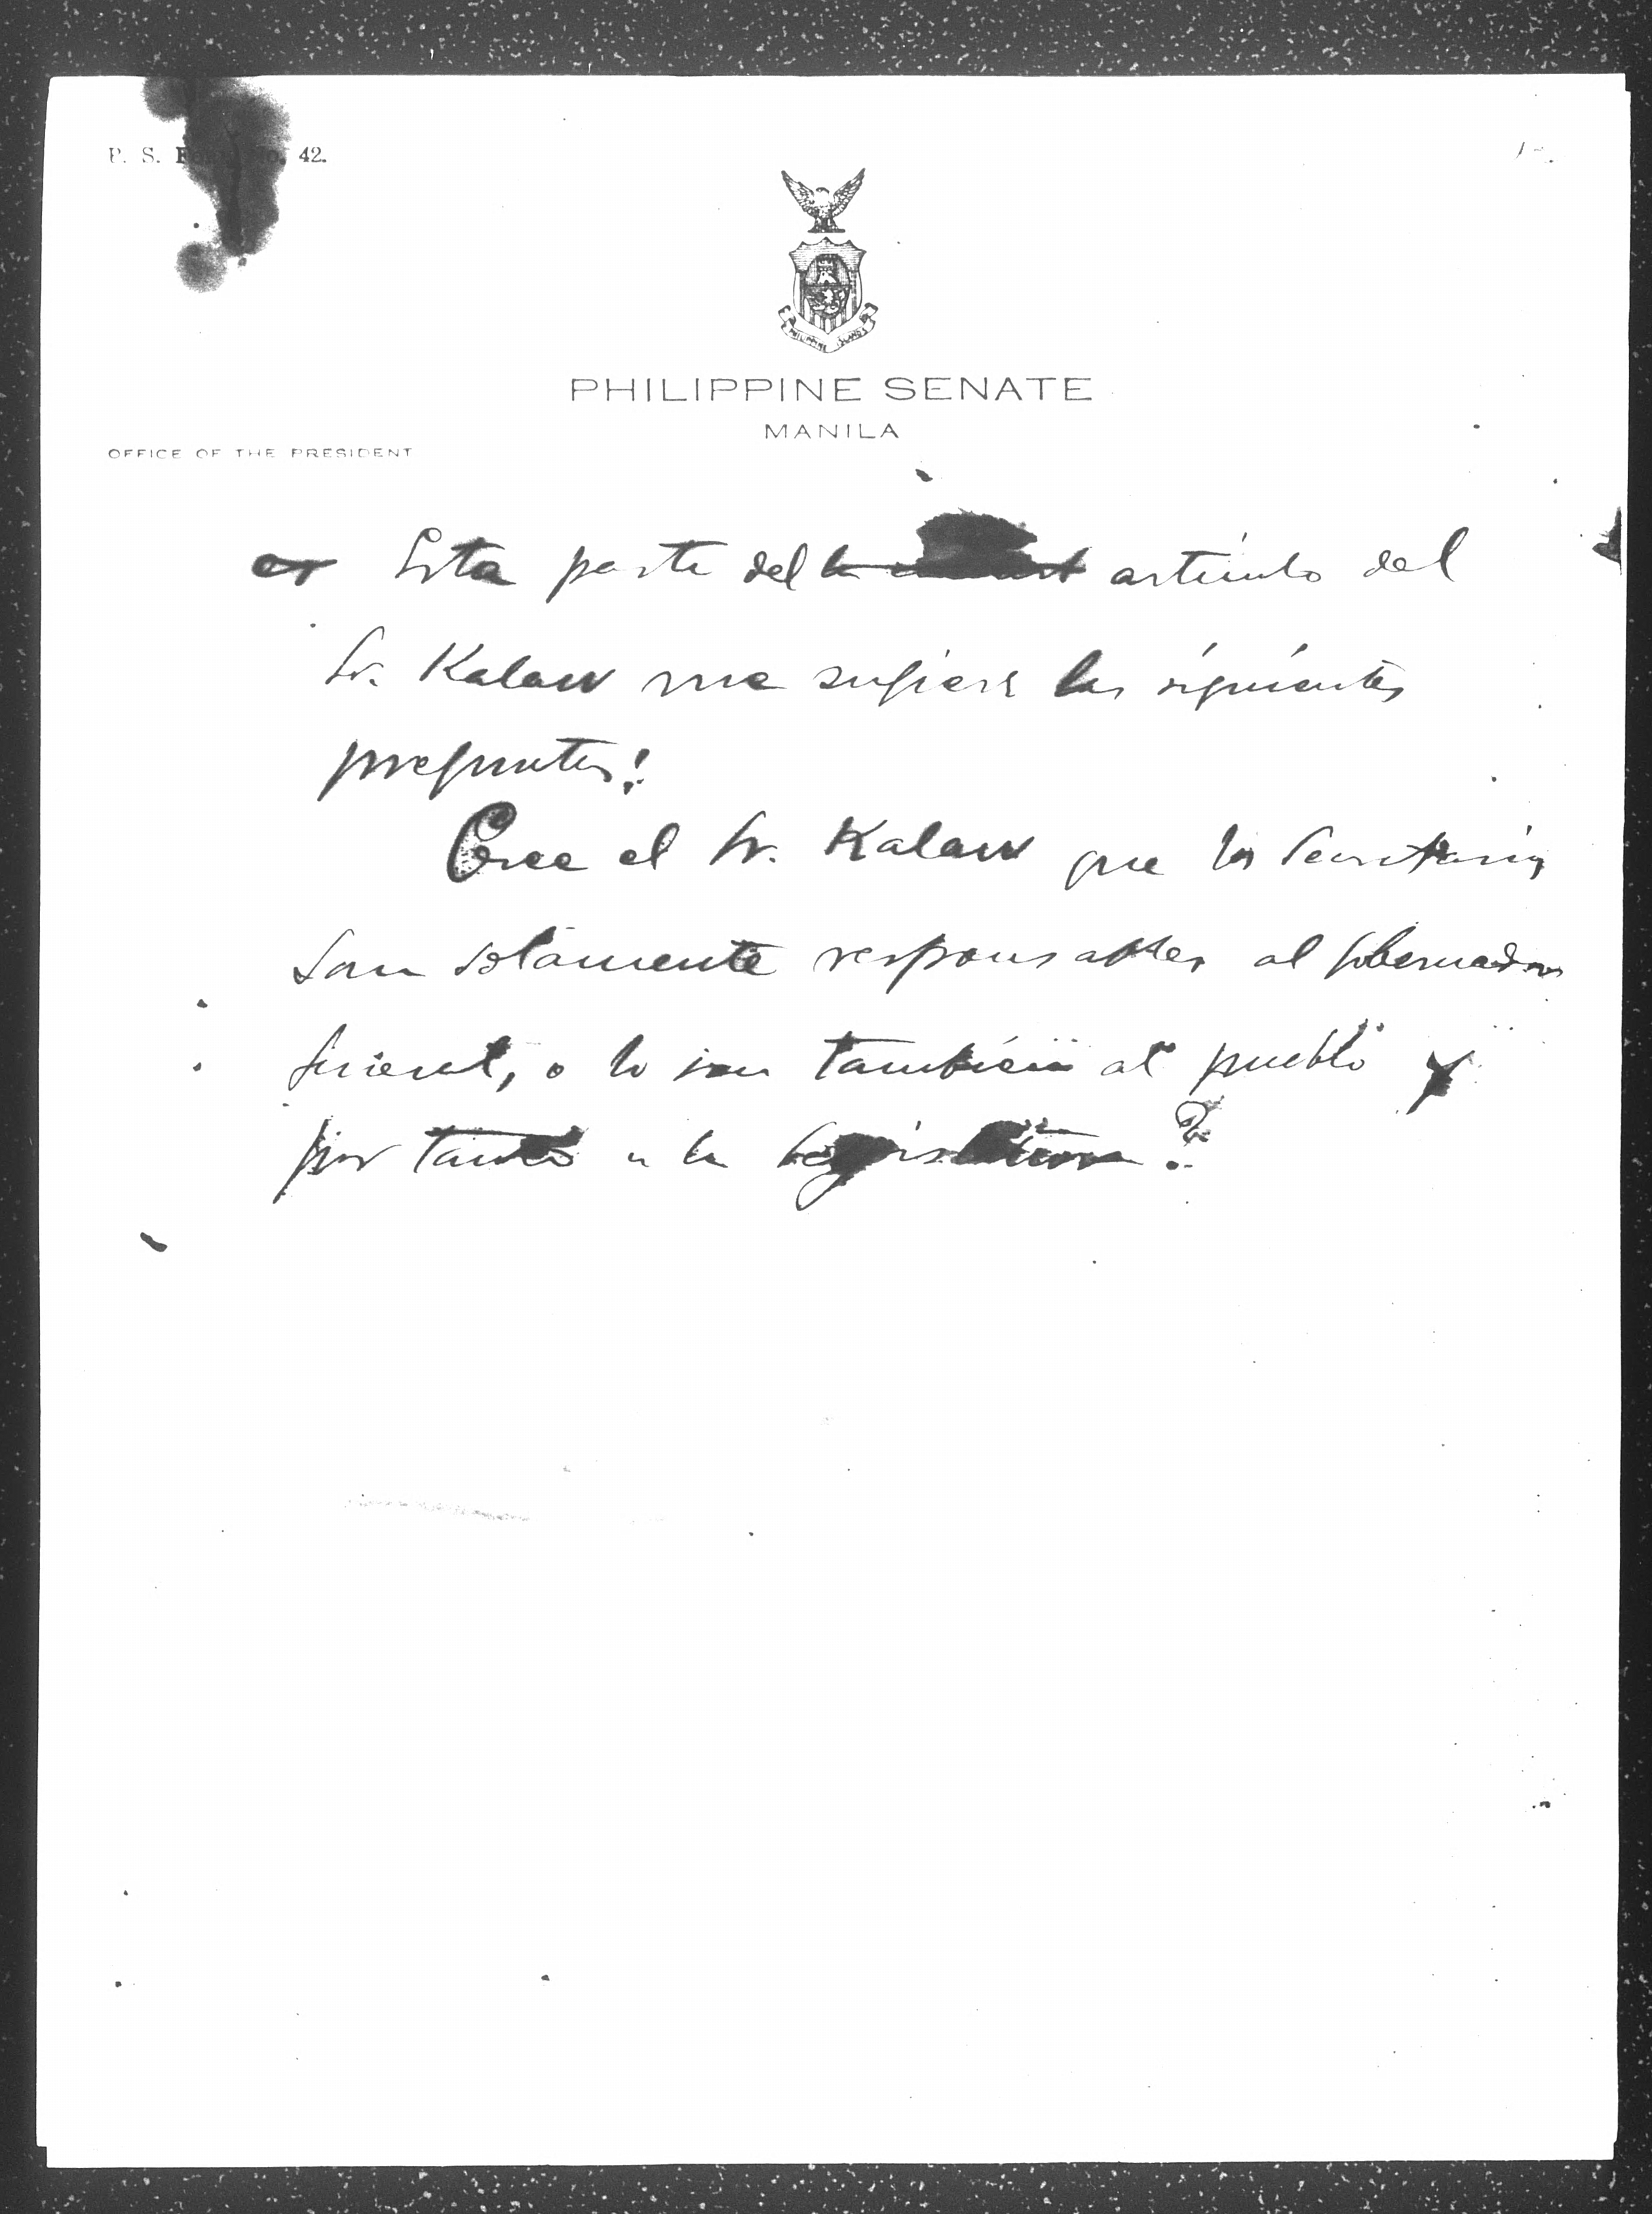 P. S. Form No. 42.
PHILIPPINE SENATE
MANILA
OFFICE OF THE PRESIDENT
Esta parte del artículo del
Sr. Kalaw me sugiere las siguientes
preguntas:
Cree el Sr. Kalaw que los Secretarios
son solamente responsables al Gobernador
General, o lo son también al pueblo y
por tanto a la Legislatura?